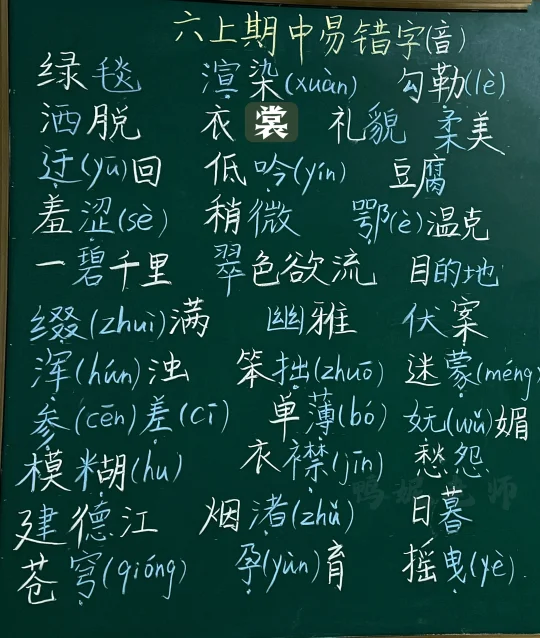 六上期中易错字(音)
绿毯 渲染(xuàn) 勾勒(lè)
洒脱 衣裳 礼貌 柔美
迂(yū)回 低吟(yín) 豆腐
羞涩(sè) 稍微 鄂(è)温克
一碧千里 翠色欲流 目的地
缀(zhuì)满 幽雅 伏案
浑(hún)浊 笨拙(zhuō) 迷蒙(méng)
参(cēn)差(cī) 单薄(bó) 妩(wǔ)媚
模糊(hu) 衣襟(jīn) 愁怨
建德江 烟渚(zhǔ) 日暮
苍穹(qióng) 孕(yùn)育 摇曳(yè)